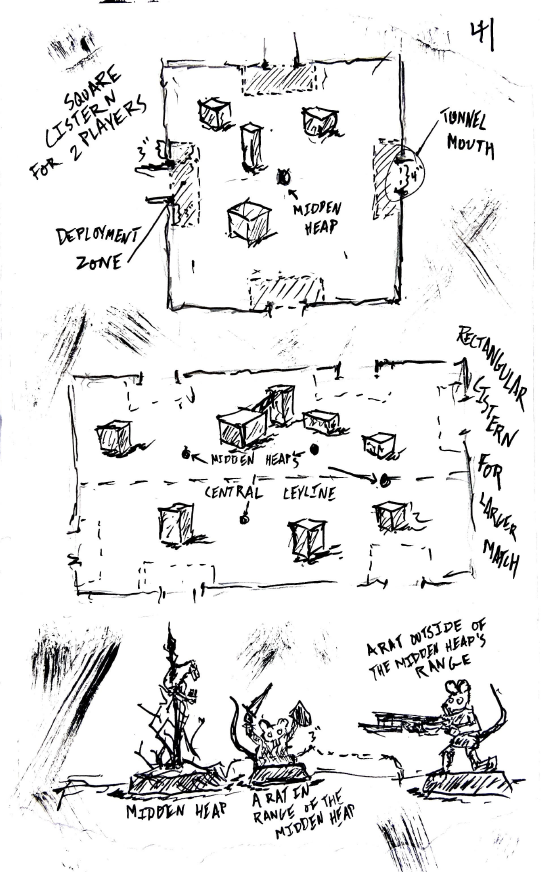 41
SQUARE
CISTERN
FOR 2 PLAYERS
TUNNEL
MOUTH
3"
4"
3"
MIDDEN
HEAP
DEPLOYMENT
ZONE
RECTANGULAR
CISTERN
FOR
LARGER
MATCH
MIDDEN HEAPS
CENTRAL LEYLINE
A RAT OUTSIDE OF
THE MIDDEN HEAP'S
RANGE
3"
MIDDEN HEAP
A RAT IN
RANGE OF THE
MIDDEN HEAP